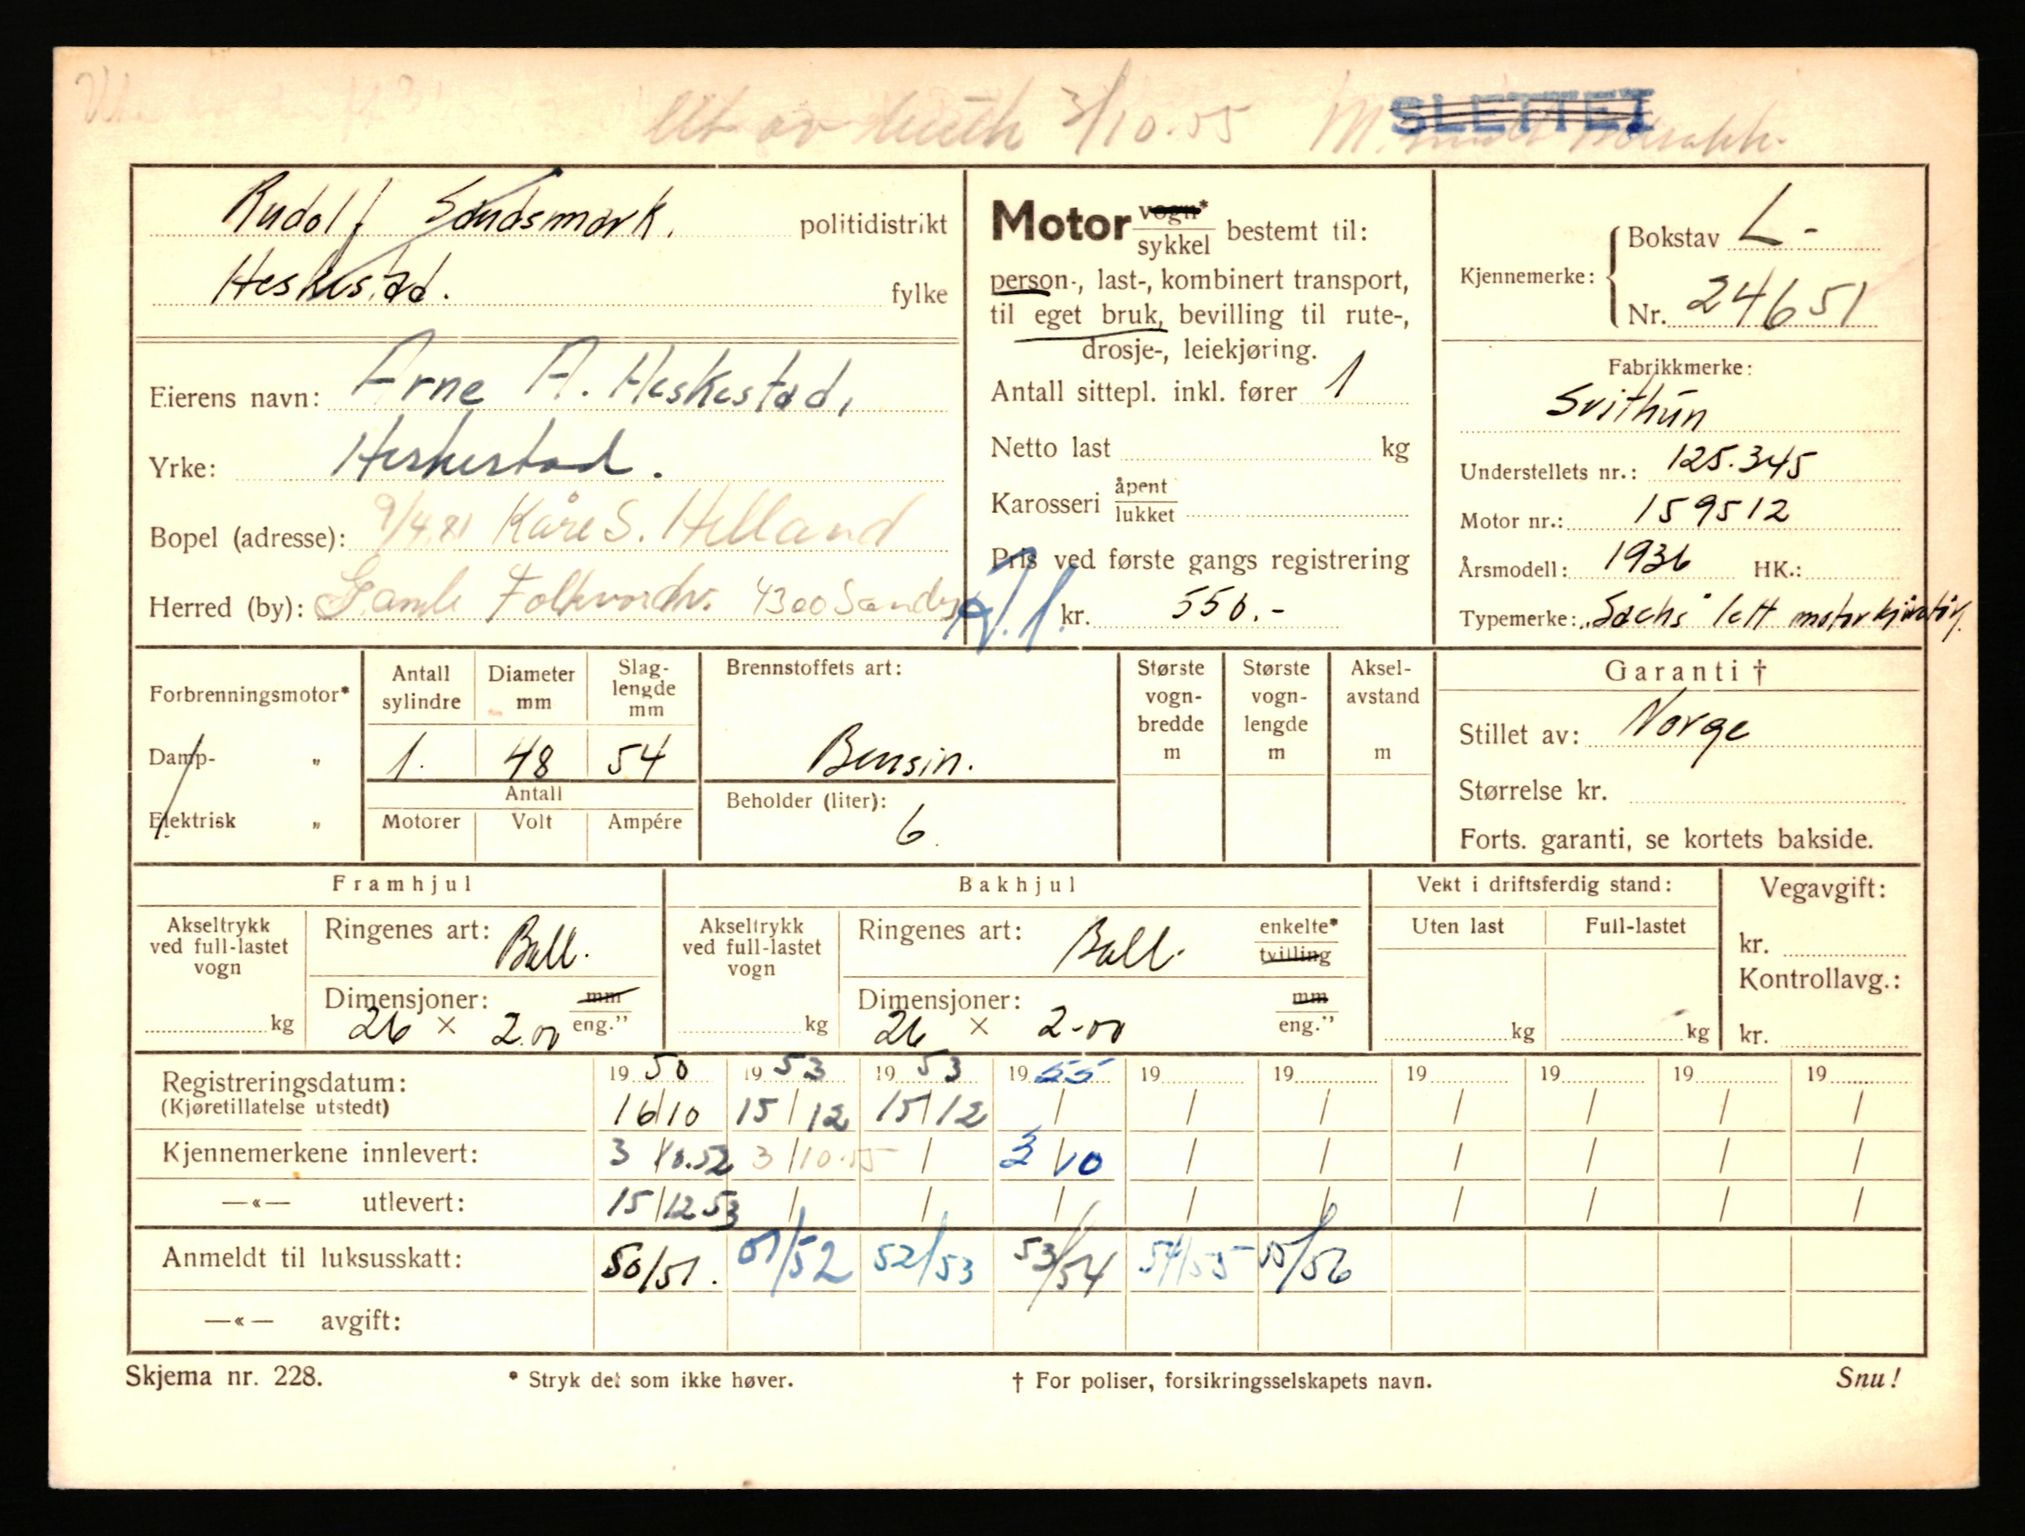 Ut av bruk 3/10.55 SLETTET
Rudolf Sandsmark. politidistrikt
Heskestad. fylke
Eierens navn: Arne A. Heskestad,
Yrke: Heskestad.
Bopel (adresse): 9/4.81 Kåre S. Helland
Herred (by): Gamle Folkvordv. 4300 Sandnes
Motor vogn* sykkel bestemt til:
person-, last-, kombinert transport,
til eget bruk, bevilling til rute-,
drosje-, leiekjøring.
Antall sittepl. inkl. fører 1
Netto last kg
Karosseri åpent lukket
Pris ved første gangs registrering
kr. 550.-
Kjennemerke: Bokstav L-
Nr. 24651
Fabrikkmerke:
Svithun
Understellets nr.: 125.345
Motor nr.: 159512
Årsmodell: 1936 HK.:
Typemerke: "Sachs" lett motorkjøretøy.
Forbrenningsmotor*
Damp- "
Elektrisk "
Antall sylindre Diameter mm Slag-lengde mm
1. 48 54
Antall
Motorer Volt Ampére
Brennstoffets art:
Bensin.
Beholder (liter):
6.
Største vogn-bredde m
Største vogn-lengde m
Aksel-avstand m
Garanti †
Stillet av: Norge
Størrelse kr.
Forts. garanti, se kortets bakside.
Framhjul
Akseltrykk ved full-lastet vogn kg
Ringenes art: Ball.
Dimensjoner: mm eng."
26 × 2.00
Bakhjul
Akseltrykk ved full-lastet vogn kg
Ringenes art: Ball. enkelte* tvilling
Dimensjoner: mm eng."
26 × 2-00
Vekt i driftsferdig stand:
Uten last Full-lastet
kg kg
Vegavgift:
kr.
Kontrollavg.:
kr.
Registreringsdatum: 1950 1953 1953 1955 19 19 19 19 19 19
(Kjøretillatelse utstedt) 16/10 15/12 15/12 / / / / / / /
Kjennemerkene innlevert: 3/10.52 3/10.55 / 3/10 / / / / / /
—«— utlevert: 15/12 53 / / / / / / / / /
Anmeldt til luksusskatt: 50/51. 51/52 52/53 53/54 54/55 55/56
—«— avgift:
Skjema nr. 228.
* Stryk det som ikke høver.
† For poliser, forsikringsselskapets navn.
Snu!